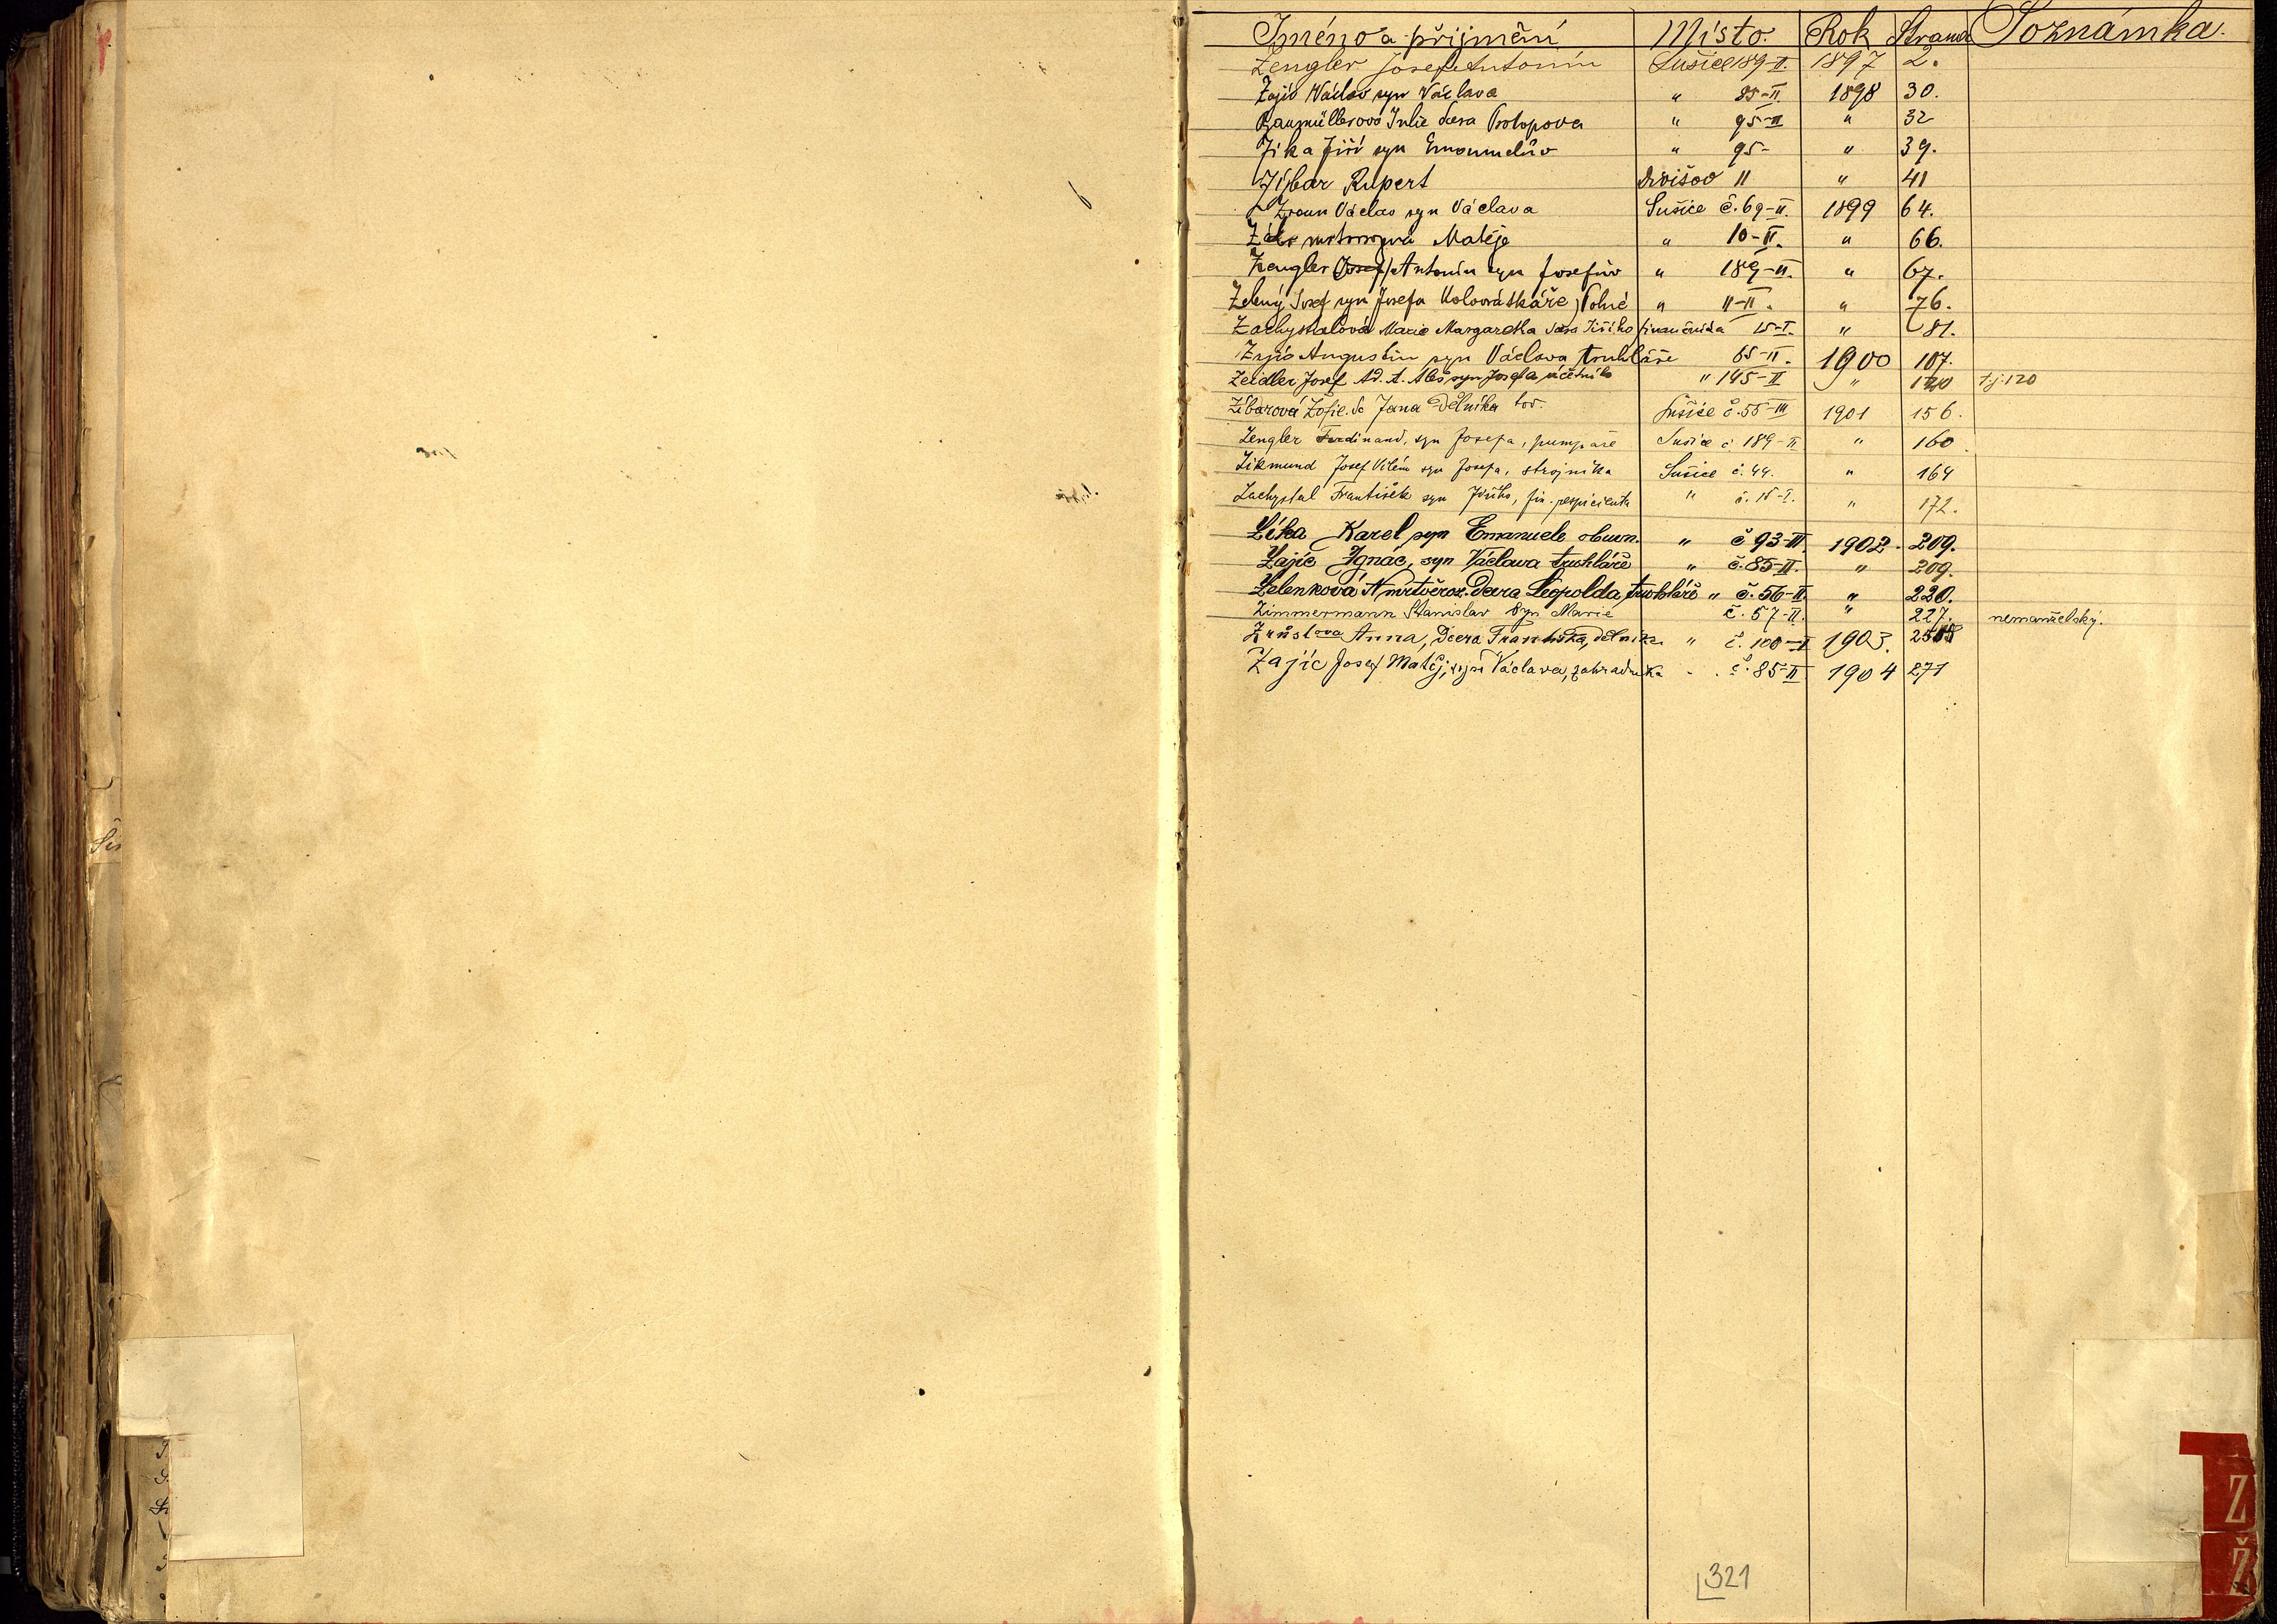 Jméno a přijmění Místo. Rok Strana Poznámka.
Zengler Josef Antonín Sušice 189-II. 1897 2.
Zajíc Václav syn Václava " 85-II. 1898 30.
Julie dcera Prokopova " 95-II " 32
Zika Jiří syn Emanuelův " 95- " 39.
Zíbar Rupert Divišov 11 " 41
Václav syn Václava Sušice č. 69-II. 1899 64.
Matěje " 10-II. " 66.
Zengler (Josef) Antonín syn Josefův " 189-II. " 67.
Zelený Josef syn Josefa Kolovrátkáře " 11-II. " 76.
Zachystalová Marie Margaretha dcera Jiřího 15-I. " 81.
Zajíc Augustin syn Václava truhláře 85-II. 1900 107.
Zeidler Josef Ad. A. syn Josefa účetního " 145-II " 120 t.j. 120
Zíbarová Žofie. Dc Jana Dělníka tov. Sušice č. 55-III 1901 156.
Zengler Ferdinand, syn Josefa, pumpaře Sušice č 189-II " 160
Zikmund Josef Vilém syn Josefa, strojníka Sušice č. 44. " 164
Zachystal František syn Jiřího, fin. respicienta " č. 15-I. " 172.
Zíka Karel syn Emanuele obuvn. " č 93-III. 1902. 209.
Zajíc Ignác, syn Václava truhláře " č. 85-II. " 209.
Zelenková N mrtvěroz. Dcera Leopolda, truhláře " č. 56-II " 220.
Zimmermann Stanislav syn Marie č. 57-II. " 227. nemanželský.
Anna, Dcera Františka, dělníka " č. 100-I 1903.
Zajíc Josef Matěj, syn Václava, zahradníka " č. 85-II 1904 271
321
Z
Ž